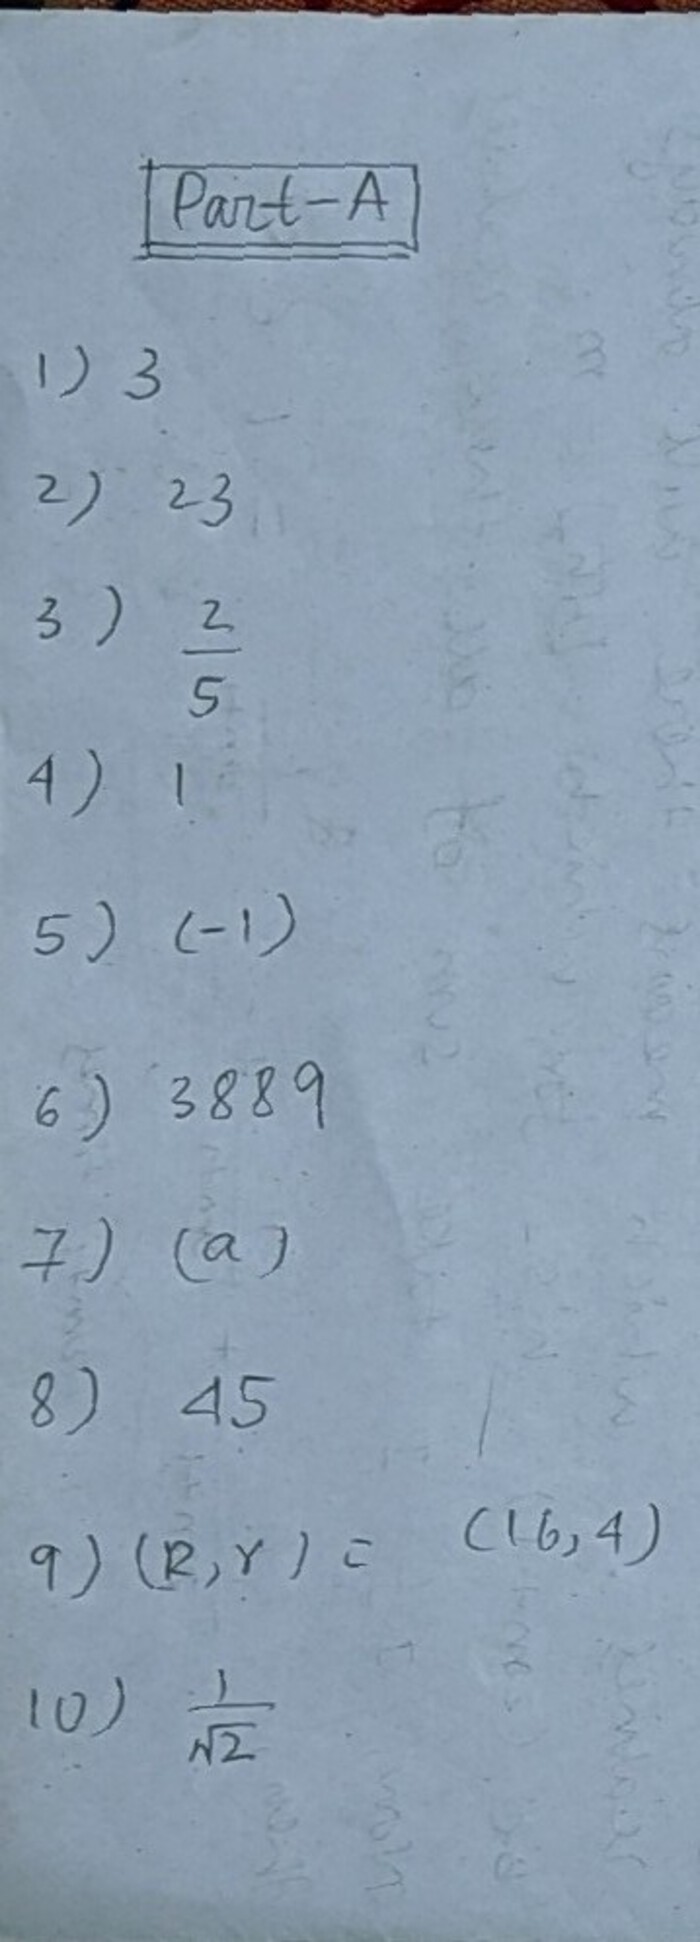 Part-A
1) 3
2) 23
3) 2/5
4) 1
5) (-1)
6) 3889
7) (a)
8) 45
9) (R,r) = (16,4)
10) 1/√2